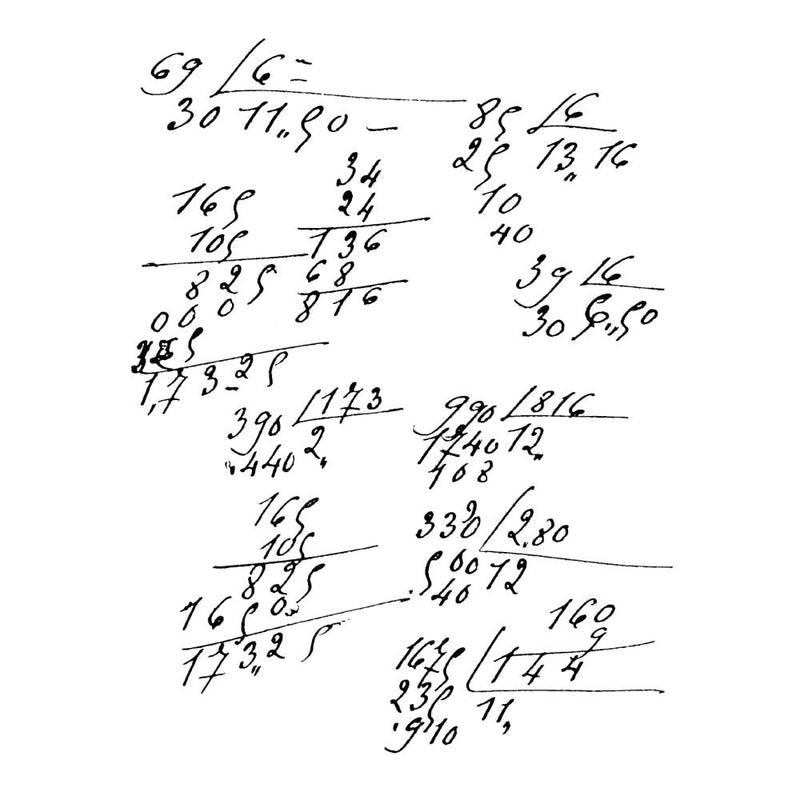 69 6 =
30 11,,50 —
85 6
25 13,,16
10
40
34
24
136
68
816
165
105
825
000
1,73-25
39 6
30 6,,50
390 173
,,440 2,,
990 816
1740 12,,
108
165
105
825
1650
173,,25
330 2.80
500 12
40
160
9
1675 144
235 11,
910